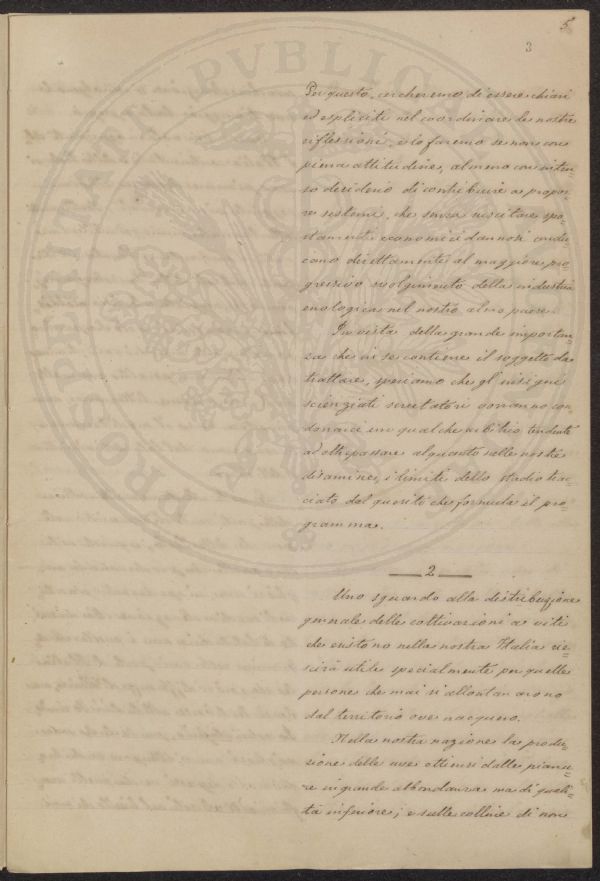 5
3
Per questo, cercheremo di essere chiari
ed espliciti nel coordinare le nostre
riflessioni, e lo faremo se non con
piena attitudine, almeno con inten-
so desiderio di contribuire a propor-
re sistemi, che senza suscitare spo-
stamenti economici dannosi condu-
cano direttamente al maggiore, pro-
gressivo svolgimento della industria
enologica nel nostro almo paese.
In vista della grande importan-
za che in se contiene il soggetto da
trattare, speriamo che gl'insigni
scienziati scrutatori vorranno con-
donarci un qual che arbitrio tendente
ad oltrepassare alquanto nelle nostre
disamine, i limiti dello stadio trac-
ciato dal quesito che formula il pro-
gramma.
2
Uno sguardo alla distribuzione
generale delle coltivazioni a viti
che esistono nella nostra Italia rie-
scirà utile specialmente per quelle
persone che mai si allontanarono
dal territorio ove nacquero.
Nella nostra nazione la produ-
zione delle uve ottiensi dalle pianu-
re in grande abbondanza ma di quali-
tà inferiore; e sulle colline di non
PROSPERITATI PVBLICAE